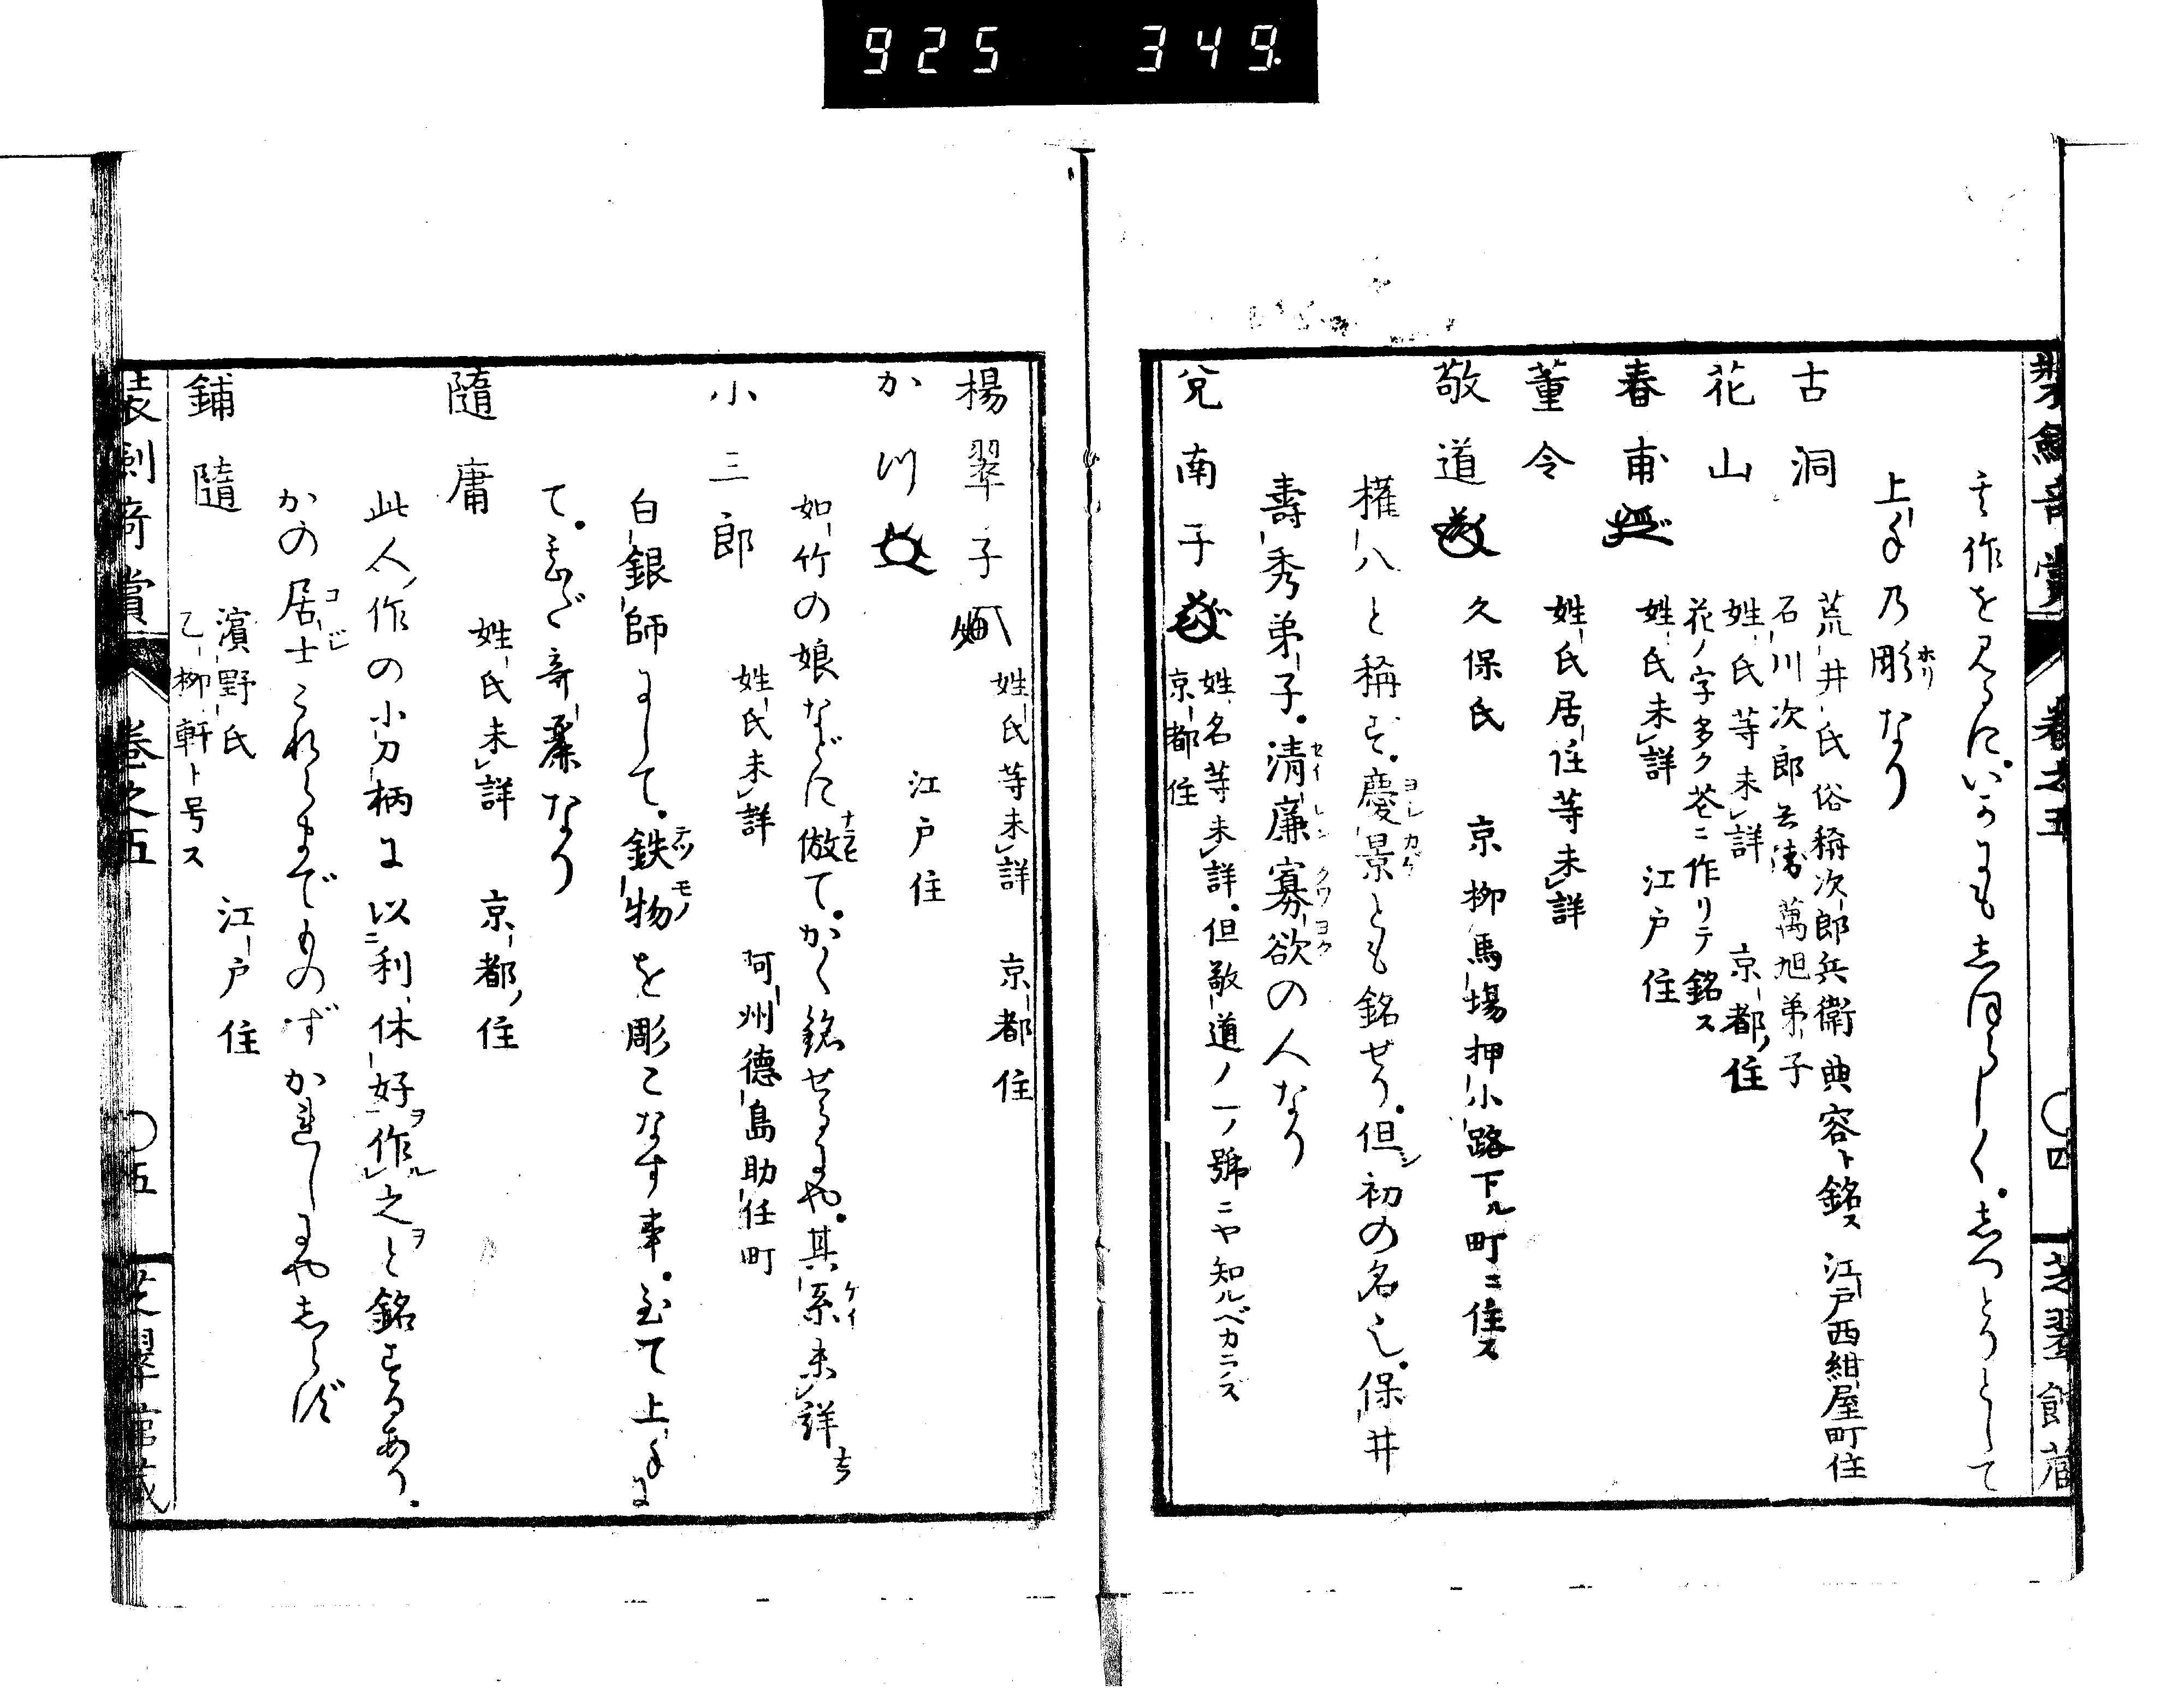 925 349.
装劔奇賞 巻之五 〇四 芝翠館蔵
其作を見るに。いかにもしほらしく。しつとりとして
上手乃彫なり
古洞 荒井氏俗稱次郎兵衛 典容ト銘ス 江戸西紺屋町住
石川次郎 萬旭弟子
花山 姓氏等未詳 京都ノ住
花ノ字多ク苍ニ作リテ銘ス
春甫 姓氏未詳 江戸住
董令 姓氏居住等未詳
敬道 久保氏 京柳馬場押小路下ル町ニ住ス
權八と稱ず。慶景とも銘ぜり。但シ初の名也。保井
壽秀弟子。清廉寡欲の人なり
兌南子 姓名等未詳。但敬道ノ一ノ號ニヤ知ルベカラズ
京都住
楊翠子 姓氏等未詳 京都住
か川 江戸住
如竹の娘などに倣て。かく銘せるにや。其系未詳
小三郎 姓氏未詳 阿州德島助任町
白銀師にして。鉄物を彫こなす事。至て上手に
て。甚だ奇麗なり
隨庸 姓氏未詳 京都ノ住
此人ノ作の小刀柄に以利休好ヲ作ル之ヲと銘ずるあり。
かの居士これらまでものずかれしにやしらず
鋪隨 濵野氏 江戸住
乙柳軒ト号ス
装劔奇賞 巻之五 〇五 芝翠館蔵